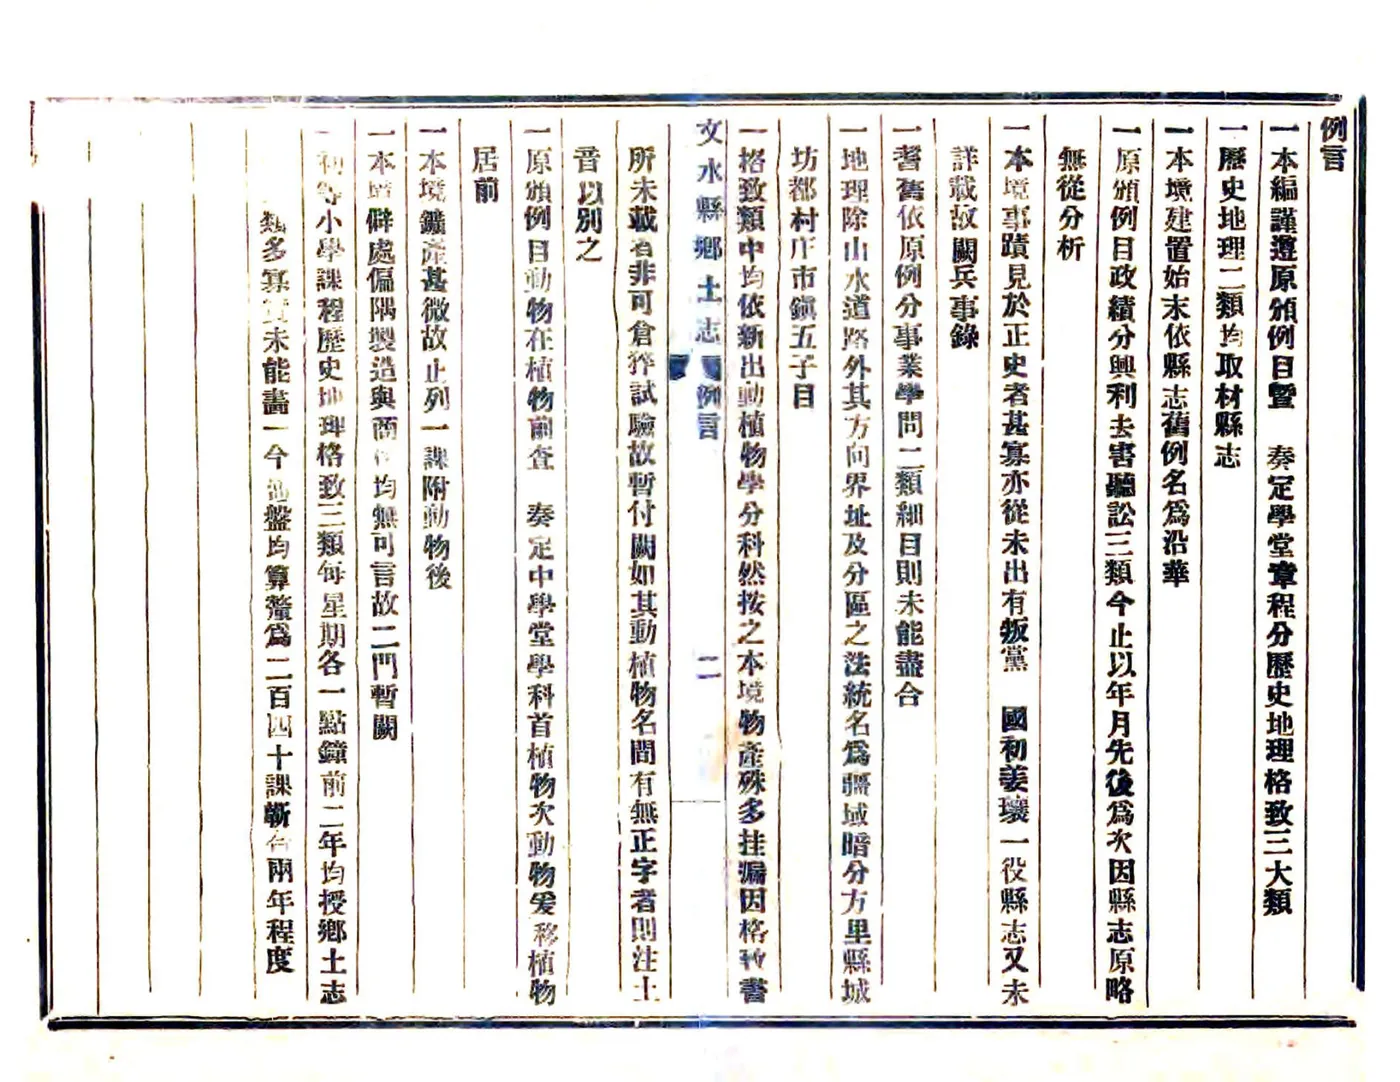 例言
一本編謹遵原頒例目暨　奏定學堂章程分歷史地理格致三大類
一歷史地理二類均取材縣志
一本境建置始末依縣志舊例名爲沿革
一原頒例目政績分興利去害聽訟三類今止以年月先後爲次因縣志原略
無從分析
一本境事蹟見於正史者甚寡亦從未出有叛黨　國初姜瓖一役縣志又未
詳載故闕兵事錄
一耆舊依原例分事業學問二類細目則未能盡合
一地理除山水道路外其方向界址及分區之法統名爲疆域暗分方里縣城
坊都村庄市鎮五子目
一格致類中均依新出動植物學分科然按之本境物產殊多挂漏因格致書
文水縣鄉土志　例言　二
所未載者非可倉猝試驗故暫付闕如其動植物名間有無正字者則注土
音以別之
一原頒例目動物在植物前查　奏定中學堂學科首植物次動物爰移植物
居前
一本境鑛產甚微故止列一課附動物後
一本境僻處偏隅製造與商務均無可言故二門暫闕
一初等小學課程歷史地理格致三類每星期各一點鐘前二年均授鄉土志
類多寡未能畫一今盤均算釐爲二百四十課蘄合兩年程度